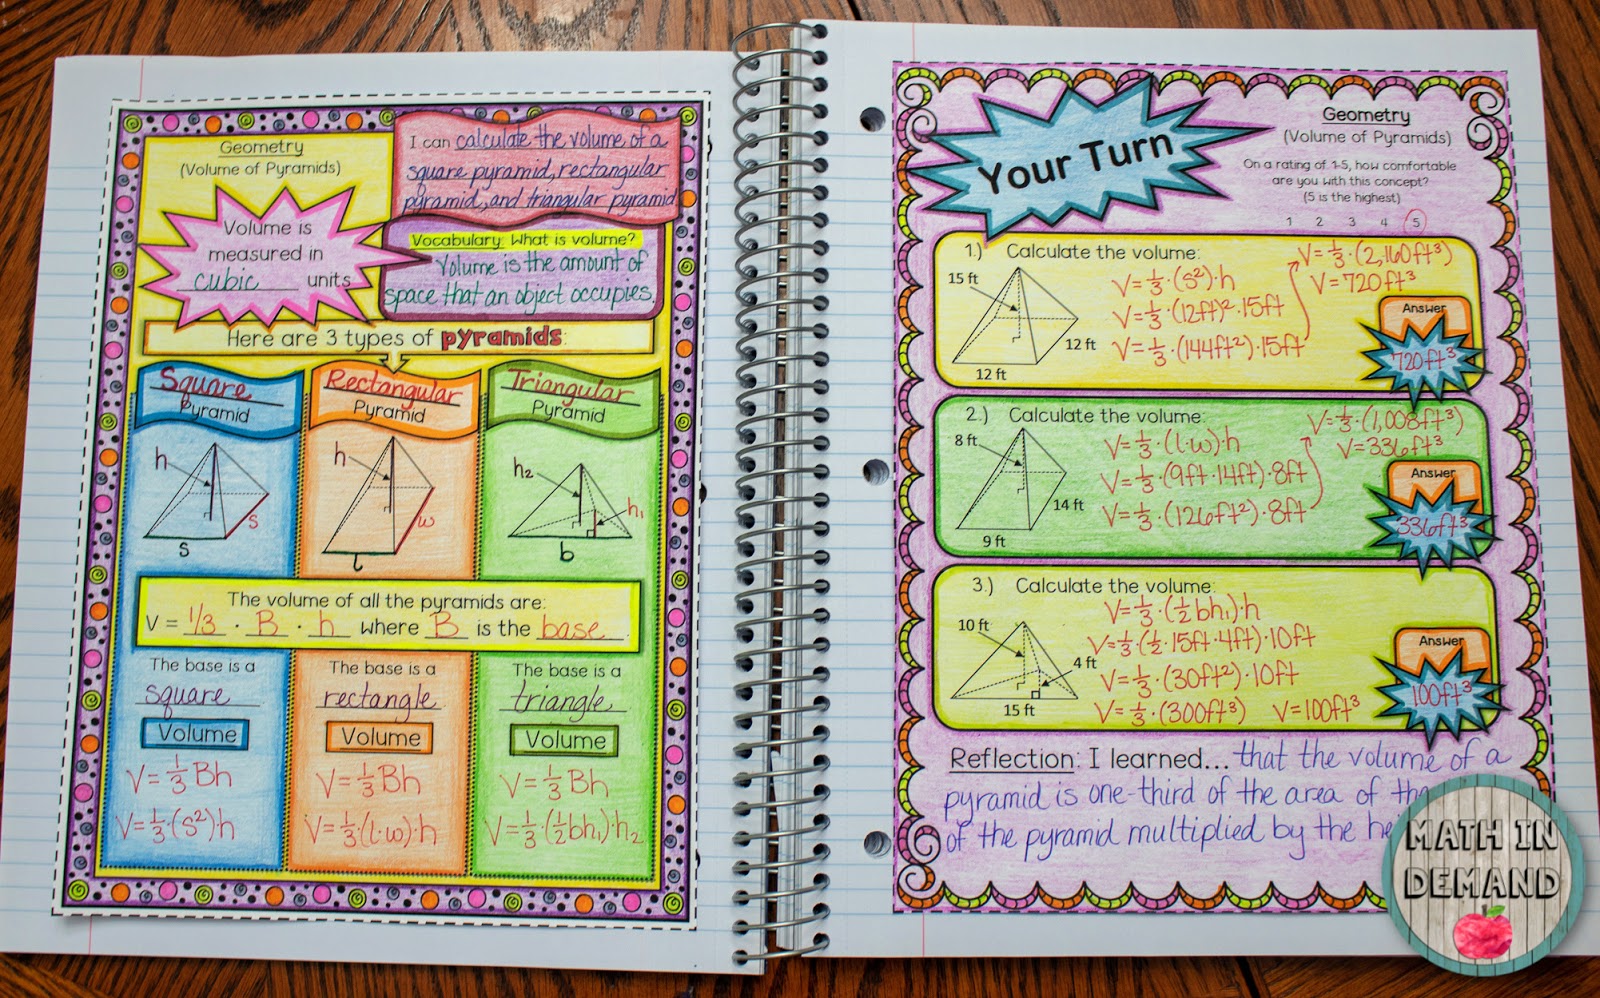 Geometry
(Volume of Pyramids)
I can calculate the volume of a
square pyramid, rectangular
pyramid, and triangular pyramid
Volume is
measured in
cubic units
Vocabulary: What is volume?
Volume is the amount of
space that an object occupies.
Here are 3 types of pyramids:
Square
Pyramid
h
s
s
Rectangular
Pyramid
h
w
l
Triangular
Pyramid
h₂
h₁
b
The volume of all the pyramids are:
V = 1/3 · B · h where B is the base.
The base is a
square
Volume
V=⅓Bh
V=⅓·(s²)·h
The base is a
rectangle
Volume
V=⅓Bh
V=⅓·(l·w)·h
The base is a
triangle
Volume
V=⅓Bh
V=⅓·(½bh₁)·h₂
Your Turn
Geometry
(Volume of Pyramids)
On a rating of 1-5, how comfortable
are you with this concept?
(5 is the highest)
1 2 3 4 5
1.) Calculate the volume:
15 ft
12 ft
12 ft
V=⅓·(s²)·h
V=⅓·(12ft)²·15ft
V=⅓·(144ft²)·15ft
V=⅓·(2,160ft³)
V=720ft³
Answer
720ft³
2.) Calculate the volume:
8 ft
14 ft
9 ft
V=⅓·(l·w)·h
V=⅓·(9ft·14ft)·8ft
V=⅓·(126ft²)·8ft
V=⅓·(1,008ft³)
V=336ft³
Answer
336ft³
3.) Calculate the volume:
10 ft
4 ft
15 ft
V=⅓·(½bh₁)·h
V=⅓(½·15ft·4ft)·10ft
V=⅓·(30ft²)·10ft
V=⅓·(300ft³) V=100ft³
Answer
100ft³
Reflection: I learned... that the volume of a
pyramid is one-third of the area of the
of the pyramid multiplied by the
MATH IN
DEMAND